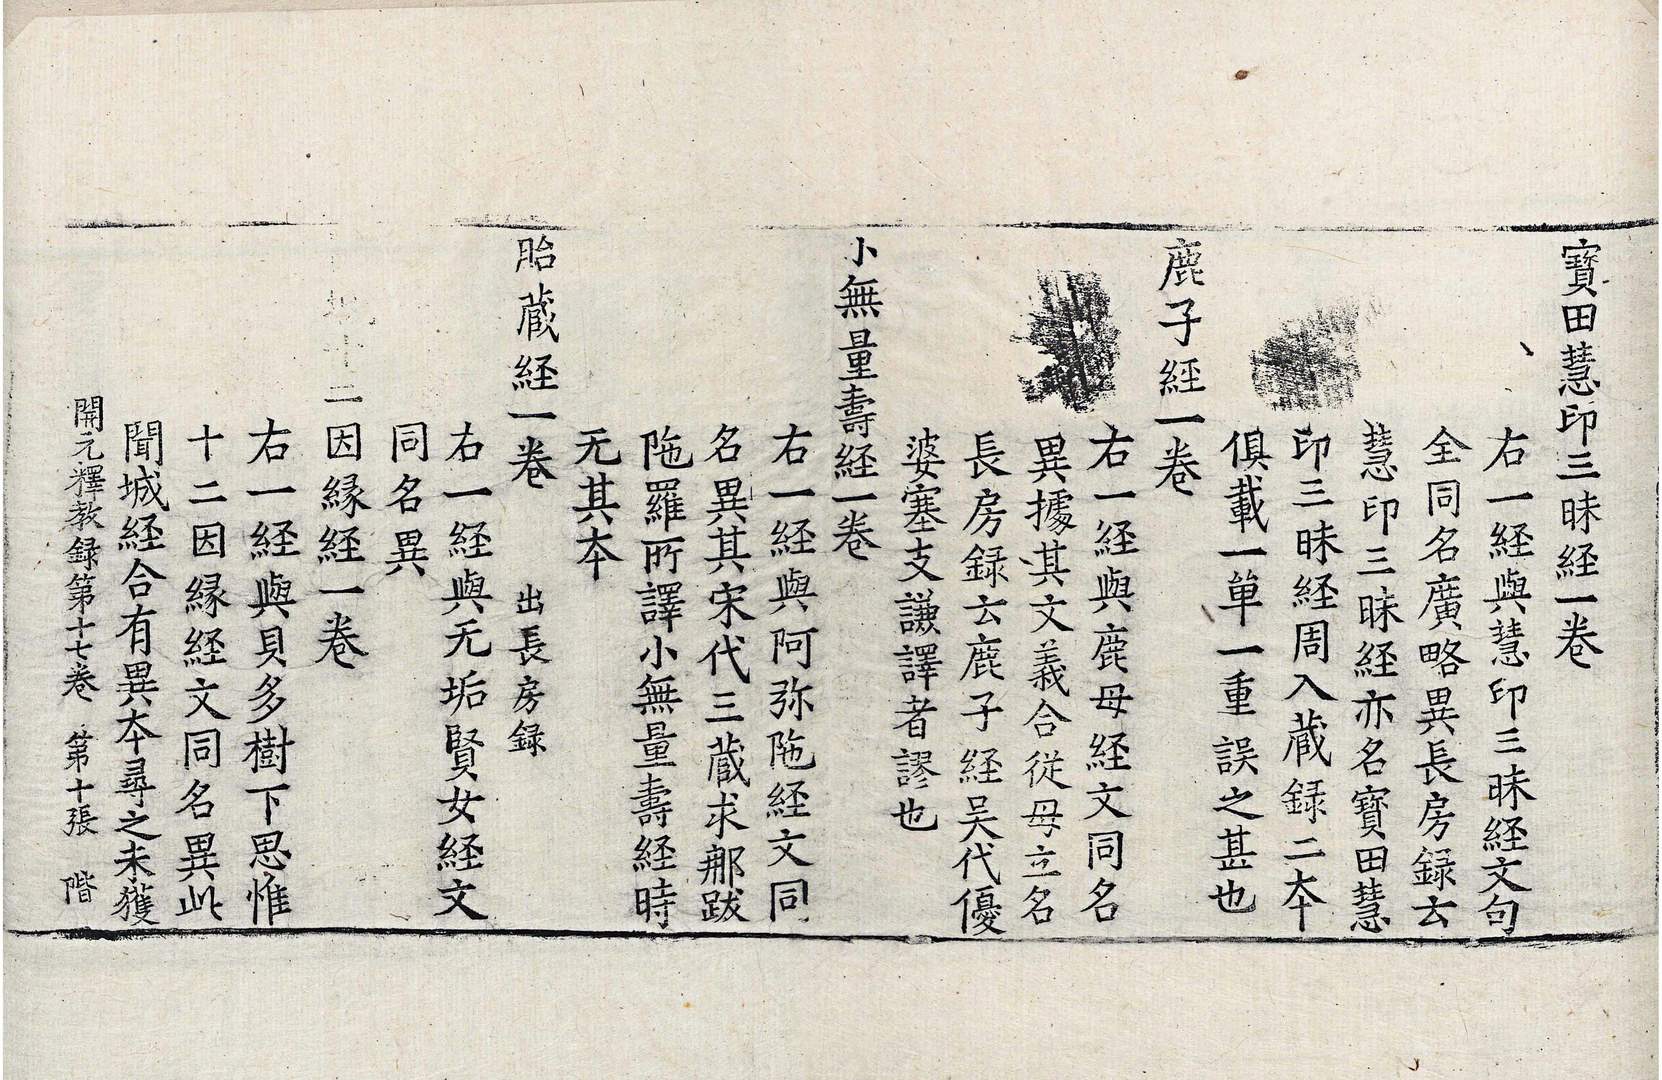 寶田慧印三昧経一卷
右一経與慧印三昧経文句
全同名廣略異長房録云
慧印三昧経亦名寶田慧
印三昧経周入蔵録二本
俱載一單一重誤之甚也
鹿子経一卷
右一経與鹿母経文同名
異據其文義合從母立名
長房録云鹿子経吴代優
婆塞支謙譯者謬也
小無量壽経一卷
右一経與阿弥陁経文同
名異其宋代三蔵求𨙻跋
陁羅所譯小無量壽経時
无其本
胎蔵経一卷 出長房録
右一経與无垢賢女経文
同名異
城十二因縁経一卷
右一経與貝多樹下思惟
十二因縁経文同名異此
聞城経合有異本尋之未獲
開元釋教録第十七卷 第十張 階